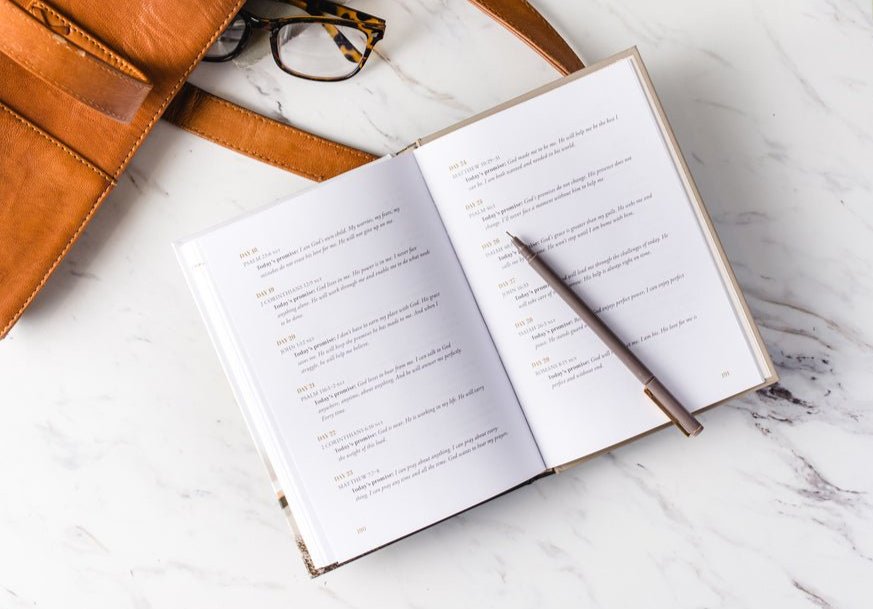 DAY 18
PSALM 25:6 NCV
Today's promise: I am God's own child. My worries, my fears, my
mistakes do not erase his love for me. He will not give up on me.
DAY 19
2 CORINTHIANS 12:9 NCV
Today's promise: God lives in me. His power is in me. I never face
anything alone. He will work through me and enable me to do what needs
to be done.
DAY 20
JOHN 1:12 NCV
Today's promise: I don't have to earn my place with God. His grace
saves me. He will keep the promise he has made to me. And when I
struggle, he will help me believe.
DAY 21
PSALM 116:1–2 NCV
Today's promise: God loves to hear from me. I can talk to God
anywhere, anytime, about anything. And he will answer me perfectly.
Every time.
DAY 22
2 CORINTHIANS 6:10 NCV
Today's promise: God is near. He is working in my life. He will carry
the weight of this load.
DAY 23
MATTHEW 7:7–8
Today's promise: I can pray about anything. I can pray every
thing. I can pray any time and all the time. God wants to hear my prayer.
190
DAY 24
MATTHEW 10:29–31
Today's promise: God made me to be me. He will help me be the best I
can be. I am both wanted and needed in his world.
DAY 25
PSALM
Today's promise: God's promises do not change. His presence does not
change. I'll never face a moment without him to help me
DAY 26
ISAIAH
Today's God's grace is greater than my guilt. He seeks me and
calls me He won't stop until I am home with him.
DAY 27
JOHN 16:33
Today's promise: will lead me through the challenges of today. He
will take care of His help is always right on time.
DAY 28
ISAIAH 26:3 NCV
Today's promise: enjoy perfect power. I can enjoy perfect
peace.
DAY 29
ROMANS 8:15 NCV
Today's promise: God will me. I am his. His love for me is
perfect and without end.
191